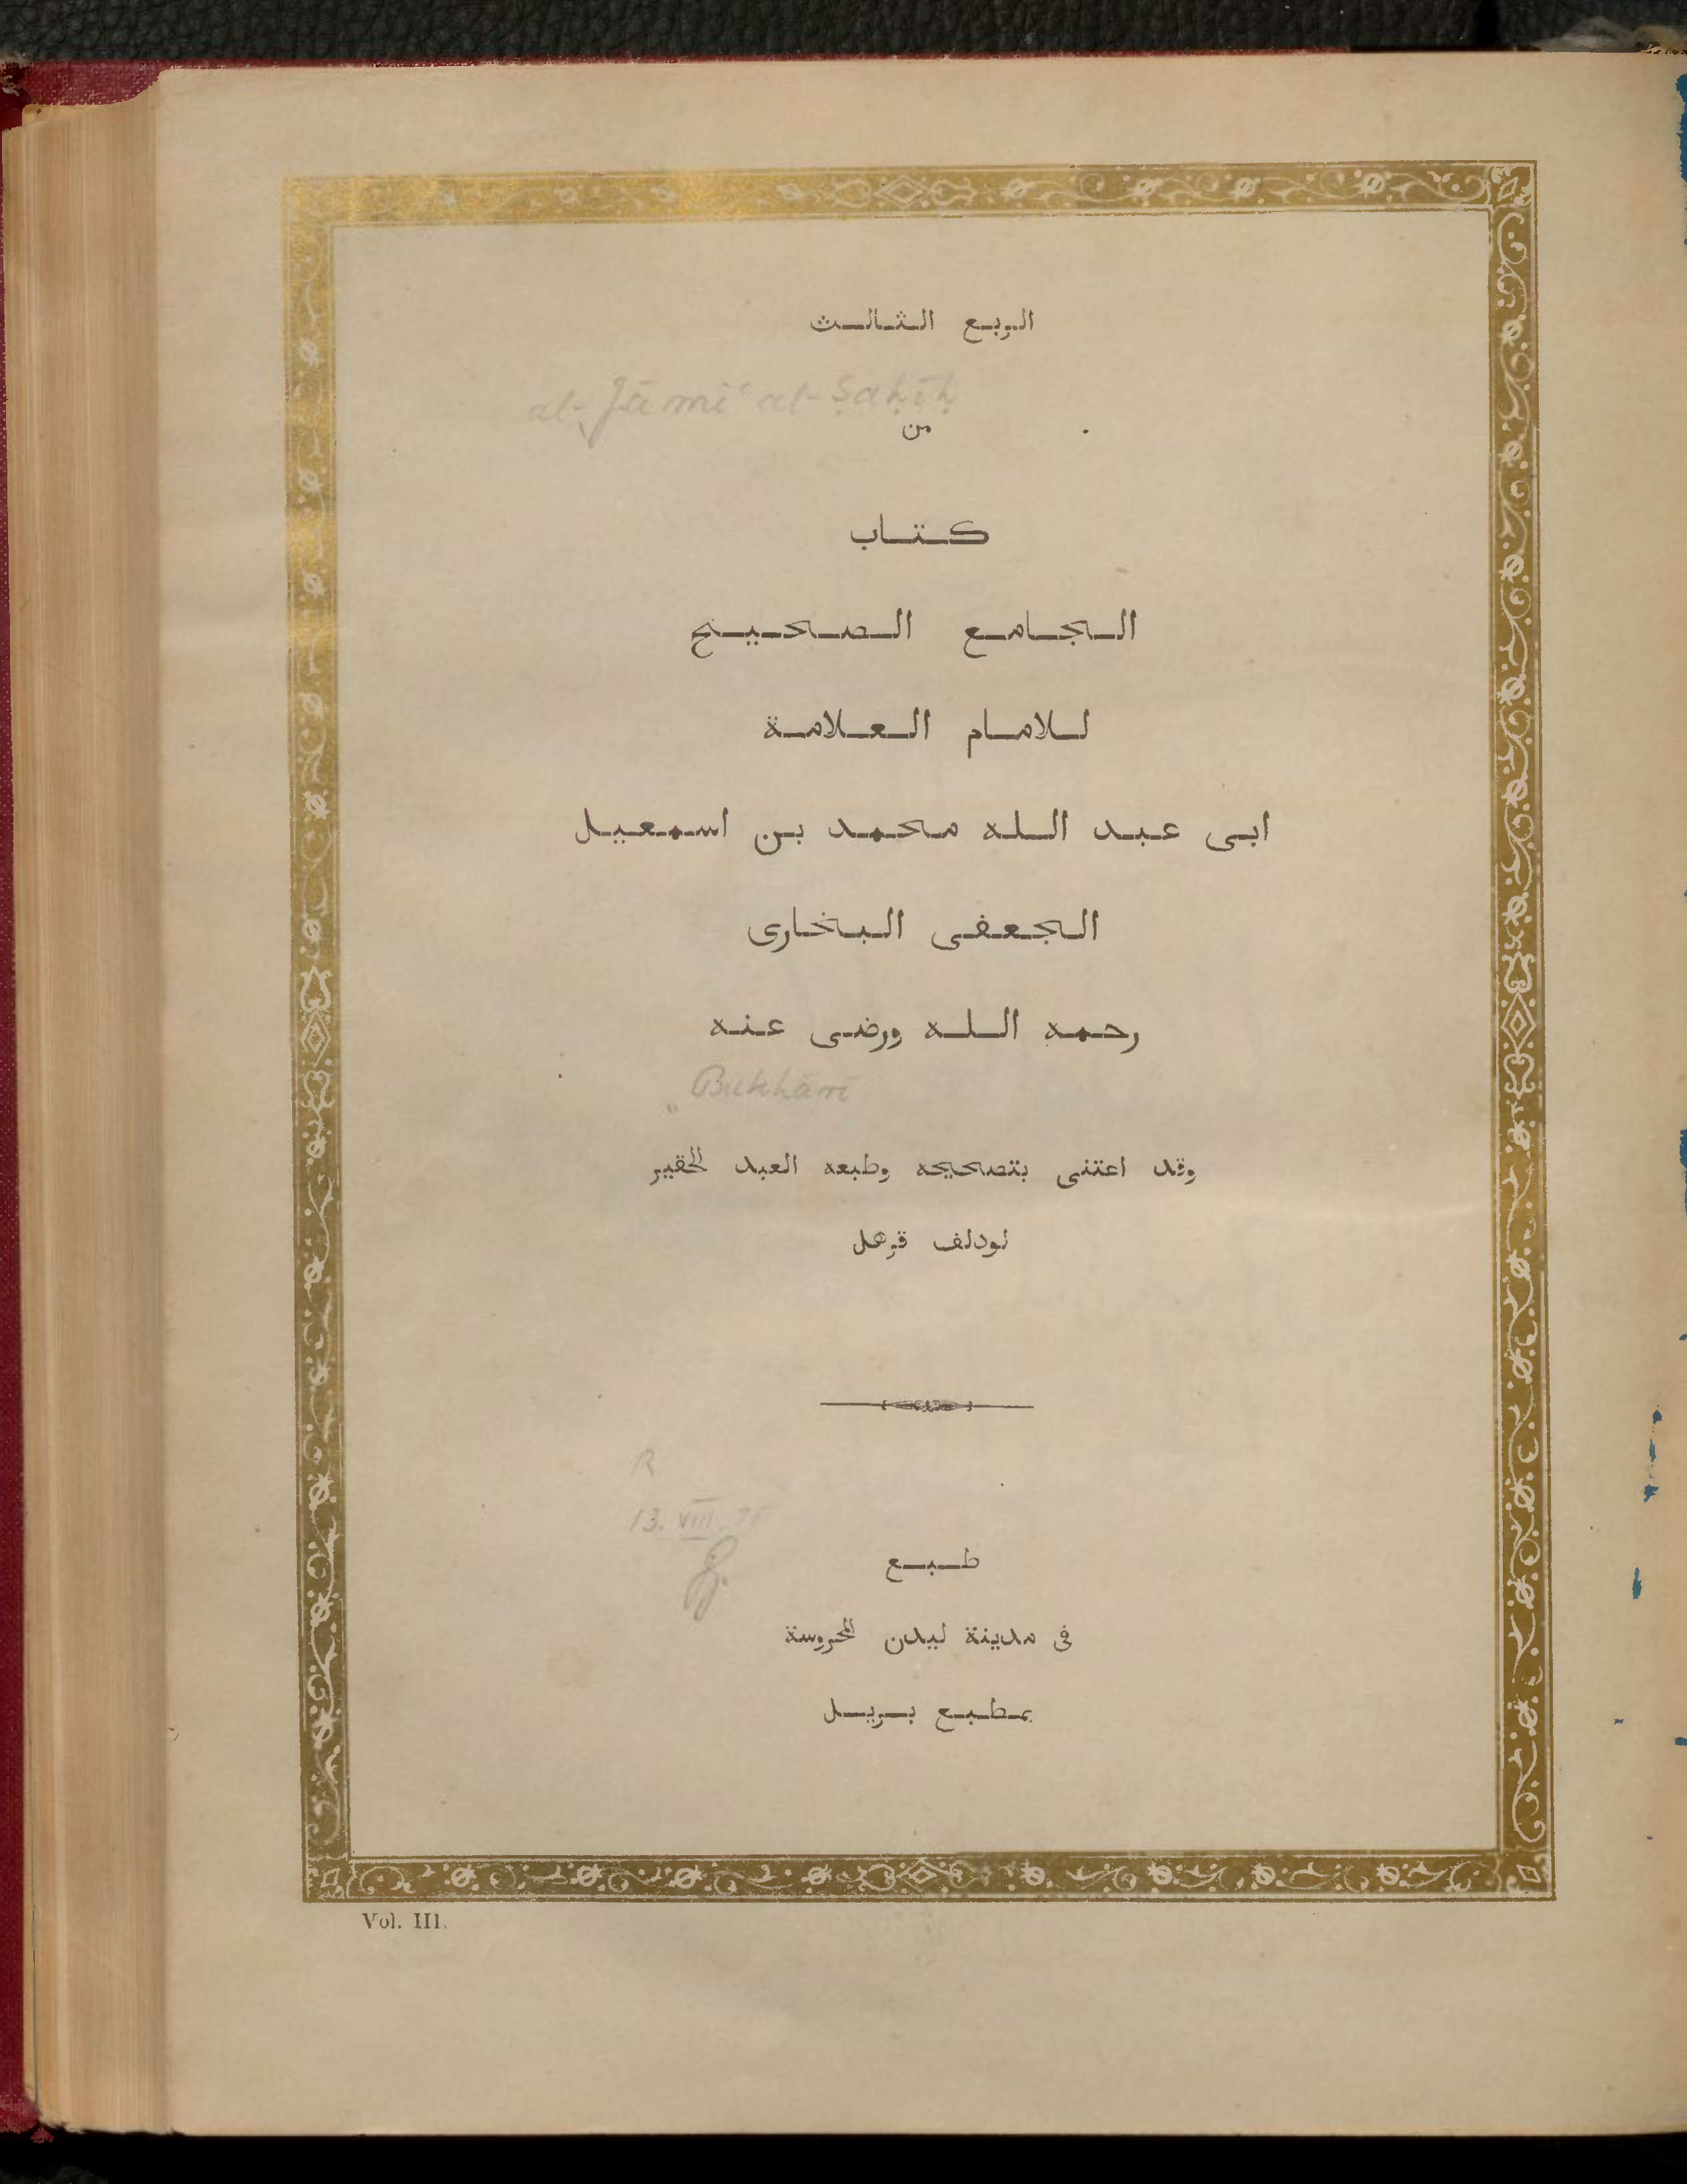 الربع الثالث
al-Jāmiʿ al-Ṣaḥīḥ
من
كتاب
الجامع الصحيح
للامام العلامة
ابى عبد الله محمد بن اسمعيل
الجعفى البخارى
رحمه الله ورضى عنه
Bukhārī
وقد اعتنى بتصحيحه وطبعه العبد الحقير
لودلف قرهل
R
13. VIII.
طبع
فى مدينة ليدن المحروسة
بمطبع بريل
Vol. III.